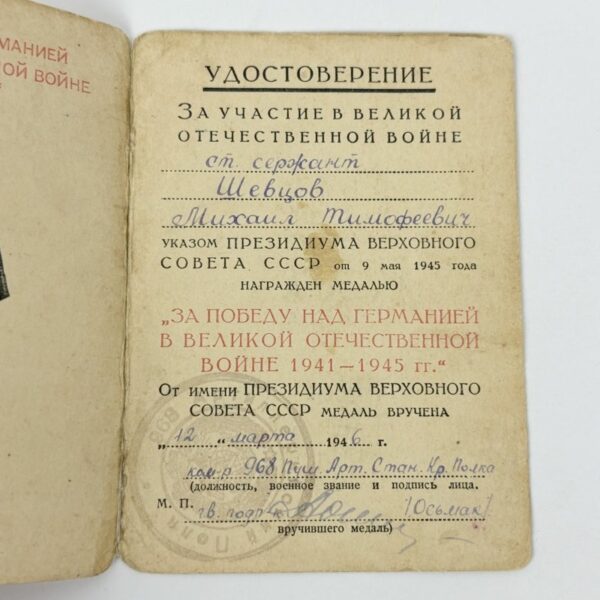 МАНИЕЙ
НОЙ ВОЙНЕ
УДОСТОВЕРЕНИЕ
ЗА УЧАСТИЕ В ВЕЛИКОЙ
ОТЕЧЕСТВЕННОЙ ВОЙНЕ
ст. сержант
Шевцов
Михаил Тимофеевич
УКАЗОМ ПРЕЗИДИУМА ВЕРХОВНОГО
СОВЕТА СССР от 9 мая 1945 года
НАГРАЖДЕН МЕДАЛЬЮ
„ЗА ПОБЕДУ НАД ГЕРМАНИЕЙ
В ВЕЛИКОЙ ОТЕЧЕСТВЕННОЙ
ВОЙНЕ 1941—1945 гг.“
ОТ ИМЕНИ ПРЕЗИДИУМА ВЕРХОВНОГО
СОВЕТА СССР МЕДАЛЬ ВРУЧЕНА
„12 “ марта 1946 г.
ком-р 968 Пуш. Арт. Стан. Кр. Полка
(должность, военное звание и подпись лица,
М. П. гв. подп-к /Осьмак/
вручившего медаль)